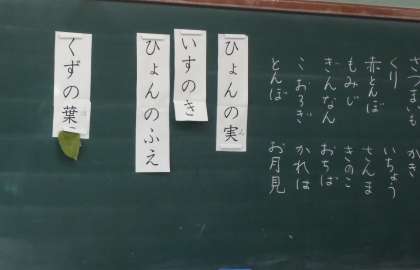 さつまいも かき
くり いちょう
赤とんぼ さんま
もみじ きのこ
ぎんなん おちば
こおろぎ かれは
とんぼ お月見
ひょんの実
いすのき
ひょんのふえ
くずの葉